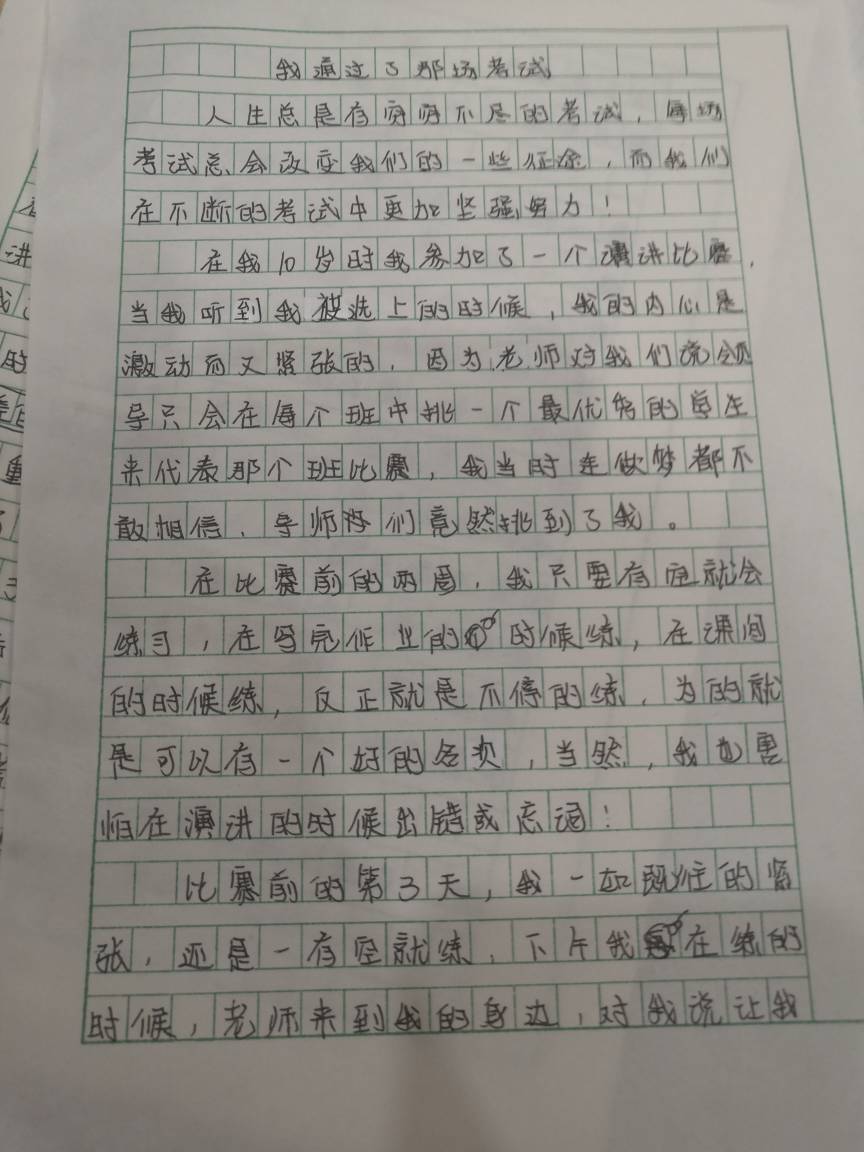 我通过了那场考试
人生总是有穷穷不尽的考试，每场
考试总会改变我们的一些征途，而我们
在不断的考试中更加坚强努力！
在我10岁时我参加了一个演讲比赛，
当我听到我被选上的时候，我的内心是
激动而又紧张的，因为老师对我们说领
导只会在每个班中挑一个最优秀的学生
来代表那个班比赛，我当时连做梦都不
敢相信，导师们竟然挑到了我。
在比赛前的两周，我只要有空就会
练习，在写完作业的时候练，在课间
的时候练，反正就是不停的练，为的就
是可以有一个好的名次，当然，我也害
怕在演讲的时候出错或忘词！
比赛前的第3天，我一如既往的紧
张，还是一有空就练，下午我在练的
时候，老师来到我的身边，对我说让我
讲
的
重